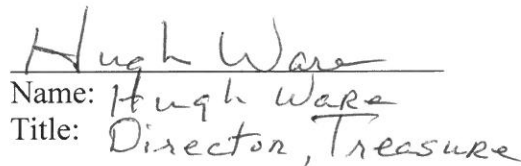 Hugh Ware
Name: Hugh Ware
Title: Director, Treasure